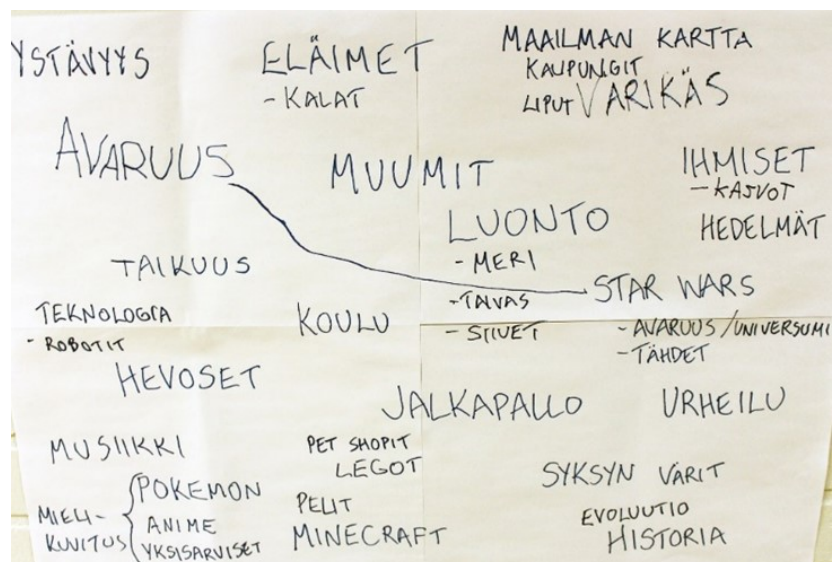 YSTÄVYYS
ELÄIMET
- KALAT
MAAILMAN KARTTA
KAUPUNGIT
LIPUT VÄRIKÄS
AVARUUS
MUUMIT
IHMISET
- KASVOT
HEDELMÄT
LUONTO
- MERI
- TAIVAS
- SIIVET
TAIKUUS
STAR WARS
- AVARUUS/UNIVERSUMI
- TÄHDET
TEKNOLOGIA
- ROBOTIT
KOULU
HEVOSET
JALKAPALLO
URHEILU
MUSIIKKI
PET SHOPIT
LEGOT
SYKSYN VÄRIT
MIELI-
KUVITUS
POKEMON
ANIME
YKSISARVISET
PELIT
MINECRAFT
EVOLUUTIO
HISTORIA